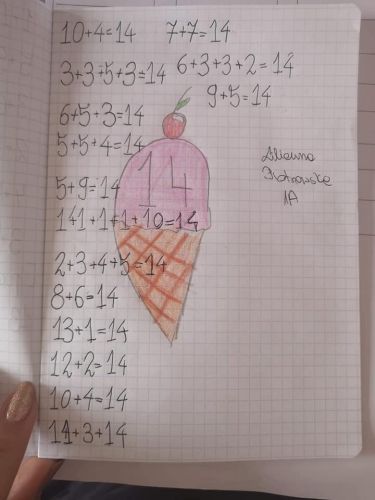 10+4=14 7+7=14
3+3+5+3=14 6+3+3+2=14
9+5=14
6+5+3=14
5+5+4=14
14
5+9=14
1+1+1+1+10=14
2+3+4+5=14
8+6=14
13+1=14
12+2=14
10+4=14
11+3+14
1A